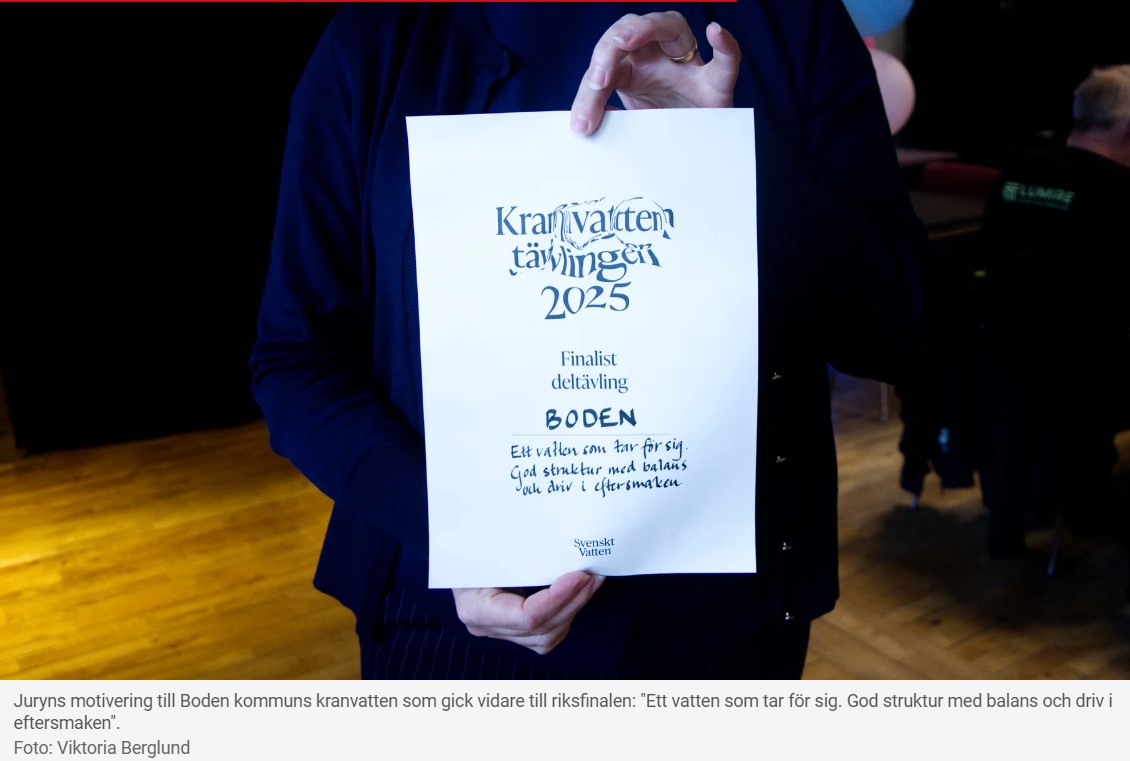 LUMIRE
Kranvatten
tävlingen
2025
Finalist
deltävling
BODEN
Ett vatten som tar för sig.
God struktur med balans
och driv i eftersmaken.
Svenskt
Vatten
Juryns motivering till Boden kommuns kranvatten som gick vidare till riksfinalen: "Ett vatten som tar för sig. God struktur med balans och driv i
eftersmaken".
Foto: Viktoria Berglund